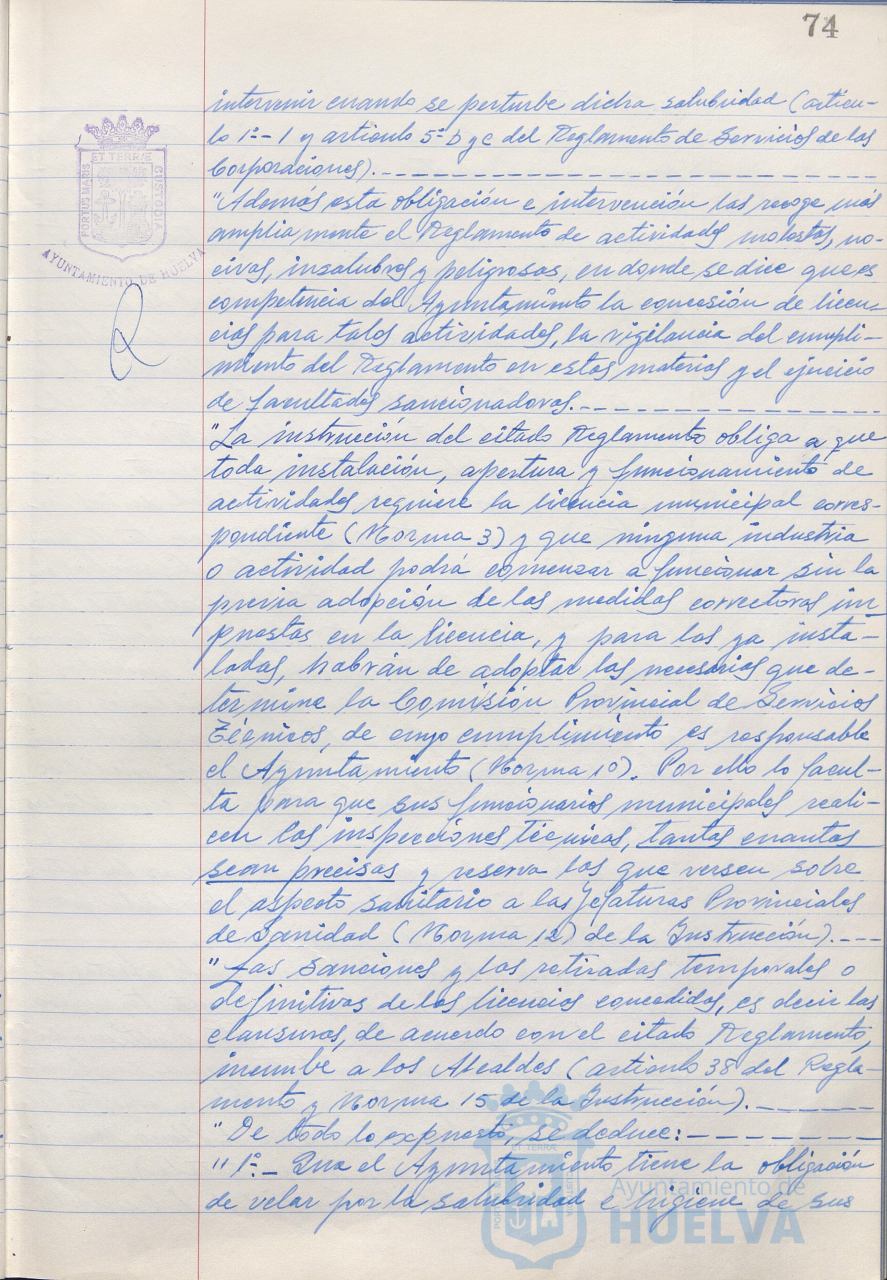 74
intervenir cuando se perturbe dicha salubridad (artícu-
lo 1º-1 y artículo 5º b y c del Reglamento de Servicios de las
Corporaciones).
"Además esta obligación e intervención las recoge más
ampliamente el Reglamento de actividades molestas, no-
civas, insalubres y peligrosas, en donde se dice que es
competencia del Ayuntamiento la concesión de licen-
cias para tales actividades, la vigilancia del cumpli-
miento del Reglamento en estas materias y el ejercicio
de facultades sancionadoras.
"La instrucción del citado Reglamento obliga a que
toda instalación, apertura y funcionamiento de
actividades requiere la licencia municipal corres-
pondiente (Norma 3) y que ninguna industria
o actividad podrá comenzar a funcionar sin la
previa adopción de las medidas correctoras im
puestas en la licencia, y para las ya insta-
ladas, habrán de adoptar las necesarias que de-
termine la Comisión Provincial de Servicios
Técnicos, de cuyo cumplimiento es responsable
el Ayuntamiento (Norma 10). Por ello lo facul-
ta para que sus funcionarios municipales reali-
cen las inspecciones técnicas, tantas cuantas
sean precisas y reserva las que versen sobre
el aspecto sanitario a las Jefaturas Provinciales
de Sanidad (Norma 12) de la Instrucción).
"Las sanciones y las retiradas temporales o
definitivas de las licencias concedidas, es decir las
clausuras, de acuerdo con el citado Reglamento,
incumbe a los Alcaldes (artículo 38 del Regla-
mento y Norma 15 de la Instrucción).
"De todo lo expuesto, se deduce:
"1º.- Que el Ayuntamiento tiene la obligación
de velar por la salubridad e higiene de sus
ET TERRÆ
PORTUS MARIS
CUSTODIA
AYUNTAMIENTO DE HUELVA
Ayuntamiento de
HUELVA